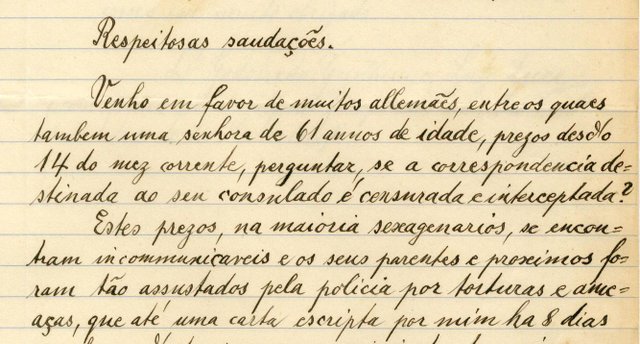 Respeitosas saudações.
Venho em favor de muitos allemães, entre os quaes
tambem uma senhora de 61 annos de idade, prezos desdo
14 do mez corrente, perguntar, se a correspondencia de=
stinada ao seu consulado é censurada e interceptada?
Estes prezos, na maioria sexagenarios, se encon=
tram incommuniçaveis e os seus parentes e proximos fo=
ram tão assustados pela policia por torturas e ame=
aças, que até uma carta escripta por mim ha 8 dias